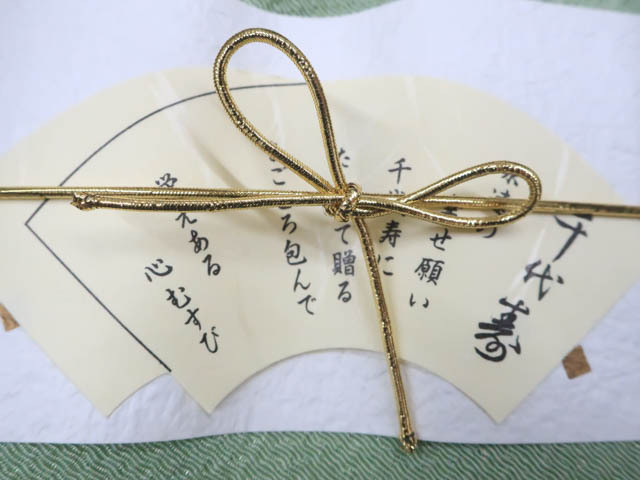 千代寿
せ願い
千 寿に
た て贈る
ご ろ包んで
栄えある
心むすび